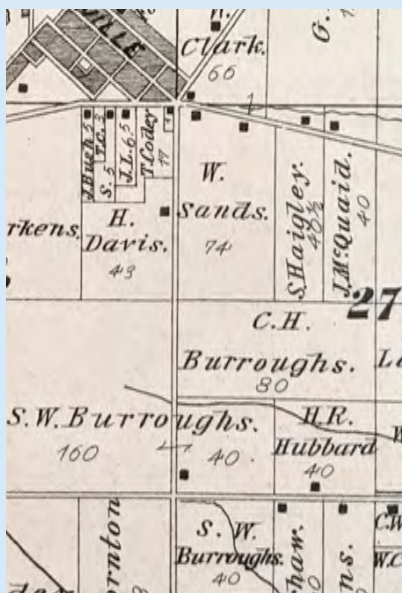 VILLE
Clark.
66
G.
J. Bush 5
T.C. 3
S. 5
J.L. 6.5
T. Codey
17
W.
Sands.
74
S. Haigley.
40½
J. McQuaid.
40
rkens.
H.
Davis.
43
27
C.H.
Burroughs.
80
S.W. Burroughs.
160
40
H.R.
Hubbard
40
S. W.
Burroughs.
40
rnton
haw.
ns.
C.W
W.C